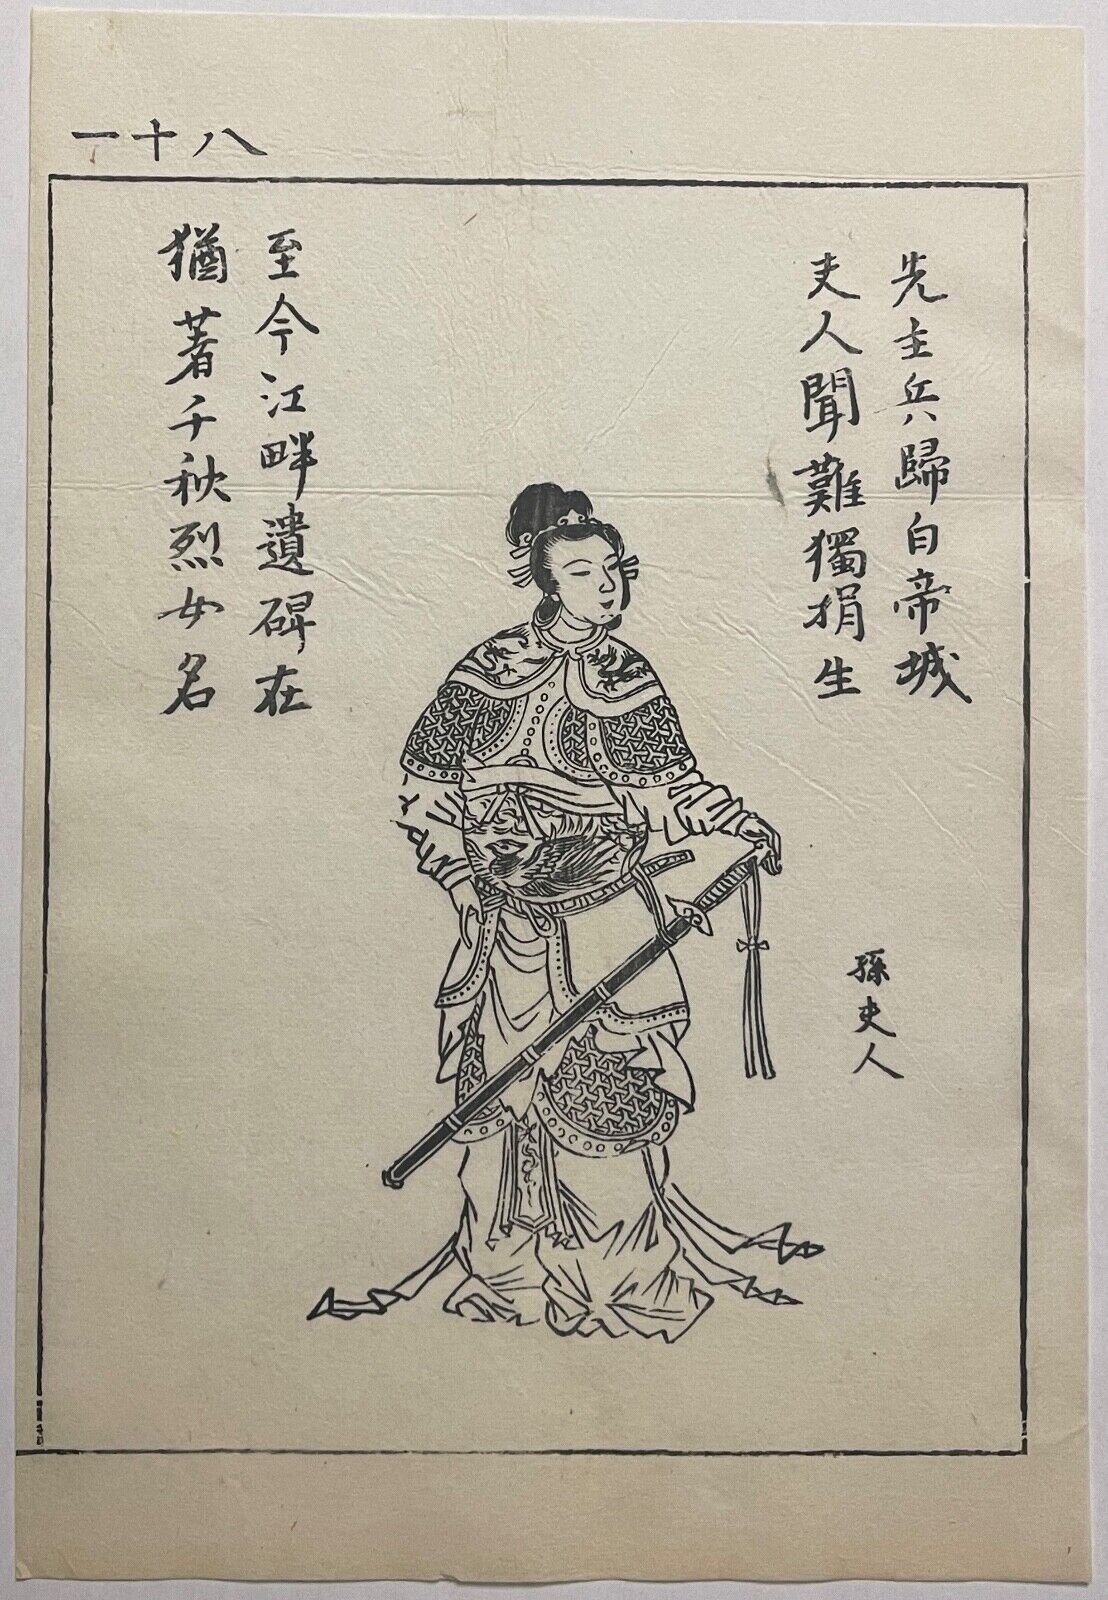 八十一
先主兵歸白帝城
夫人聞難獨捐生
至今江畔遺碑在
猶著千秋烈女名
孫夫人